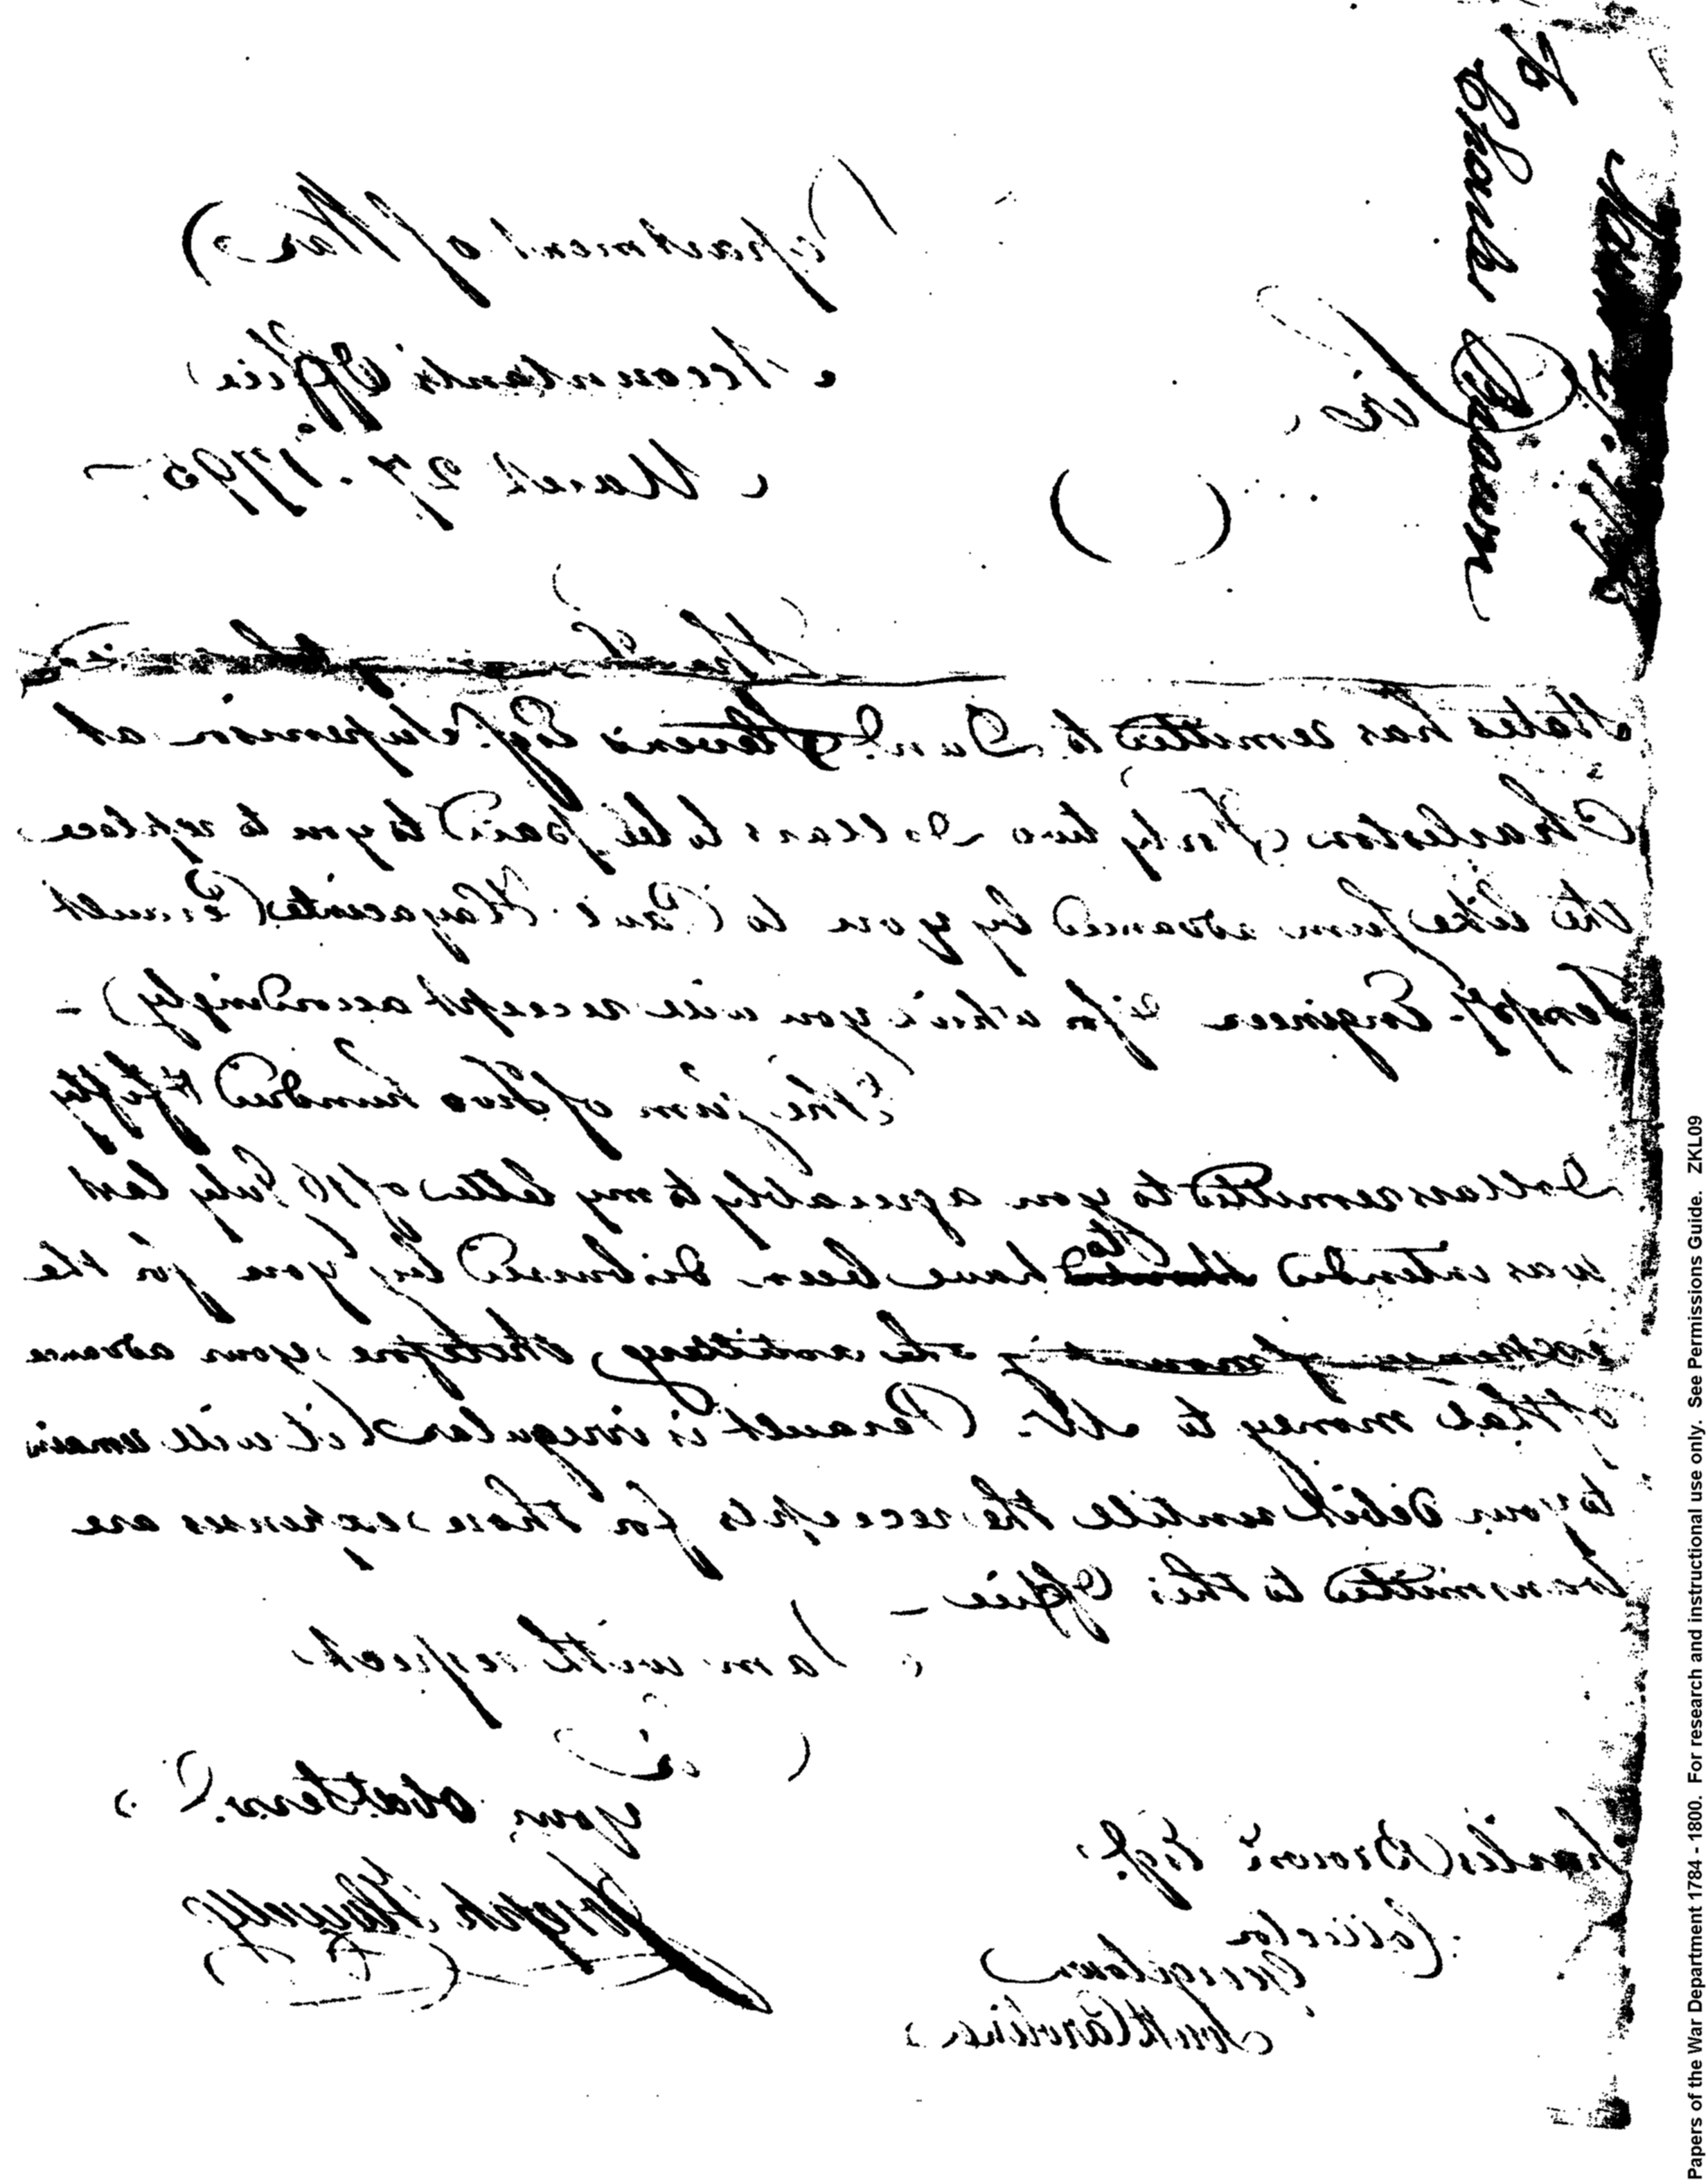 To Charles Brown
Department of War
Accountants Office
March 27. 1795
Sir
The
States has remitted to Danl. Stevens Esqr. Supervisor at
Charleston Forty two Dollars to be paid to you to replace
the like sum advanced by you to Paul Hayacinte Perault
Tempy. Engineer & for which you will receipt accordingly -
The sum of two hundred & fifty
Dollars remitted to you agreeably to my letter of 16 July last
was intended to have been disbursed by you for the
the artillery therefore your advance
of that money to Mr. Perault is irregular & it will remain
to your debit untill the receipts for those expenses are
transmitted to this Office -
I am with respect
Your Obed Serv.
Joseph Howell
Charles Brown Esqr.
Collector
Georgetown
South Carolina
Papers of the War Department 1784 - 1800. For research and instructional use only. See Permissions Guide. ZKL09